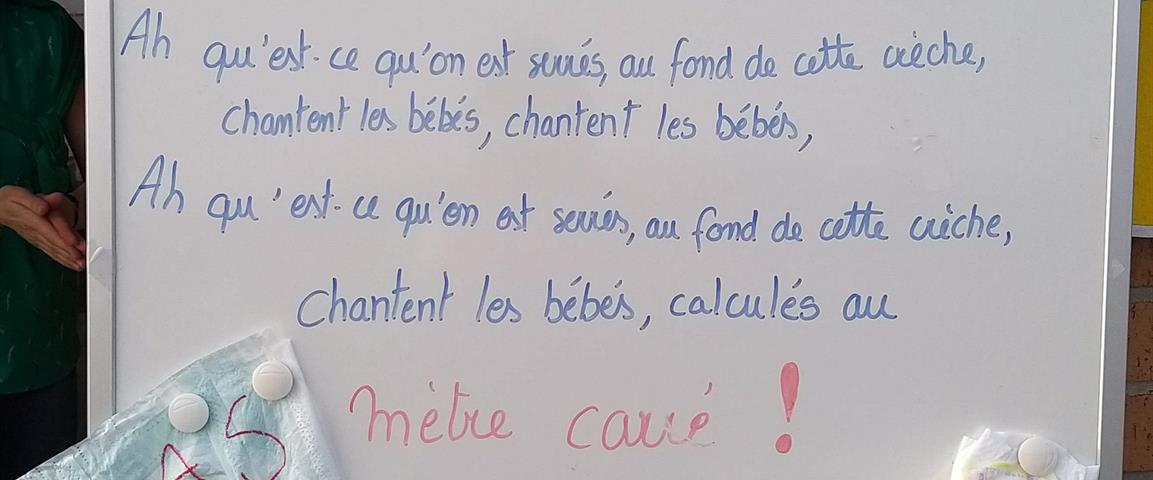 Ah qu'est-ce qu'on est serrés, au fond de cette crèche,
chantent les bébés, chantent les bébés,
Ah qu'est-ce qu'on est serrés, au fond de cette crèche,
Chantent les bébés, calculés au
mètre carré !